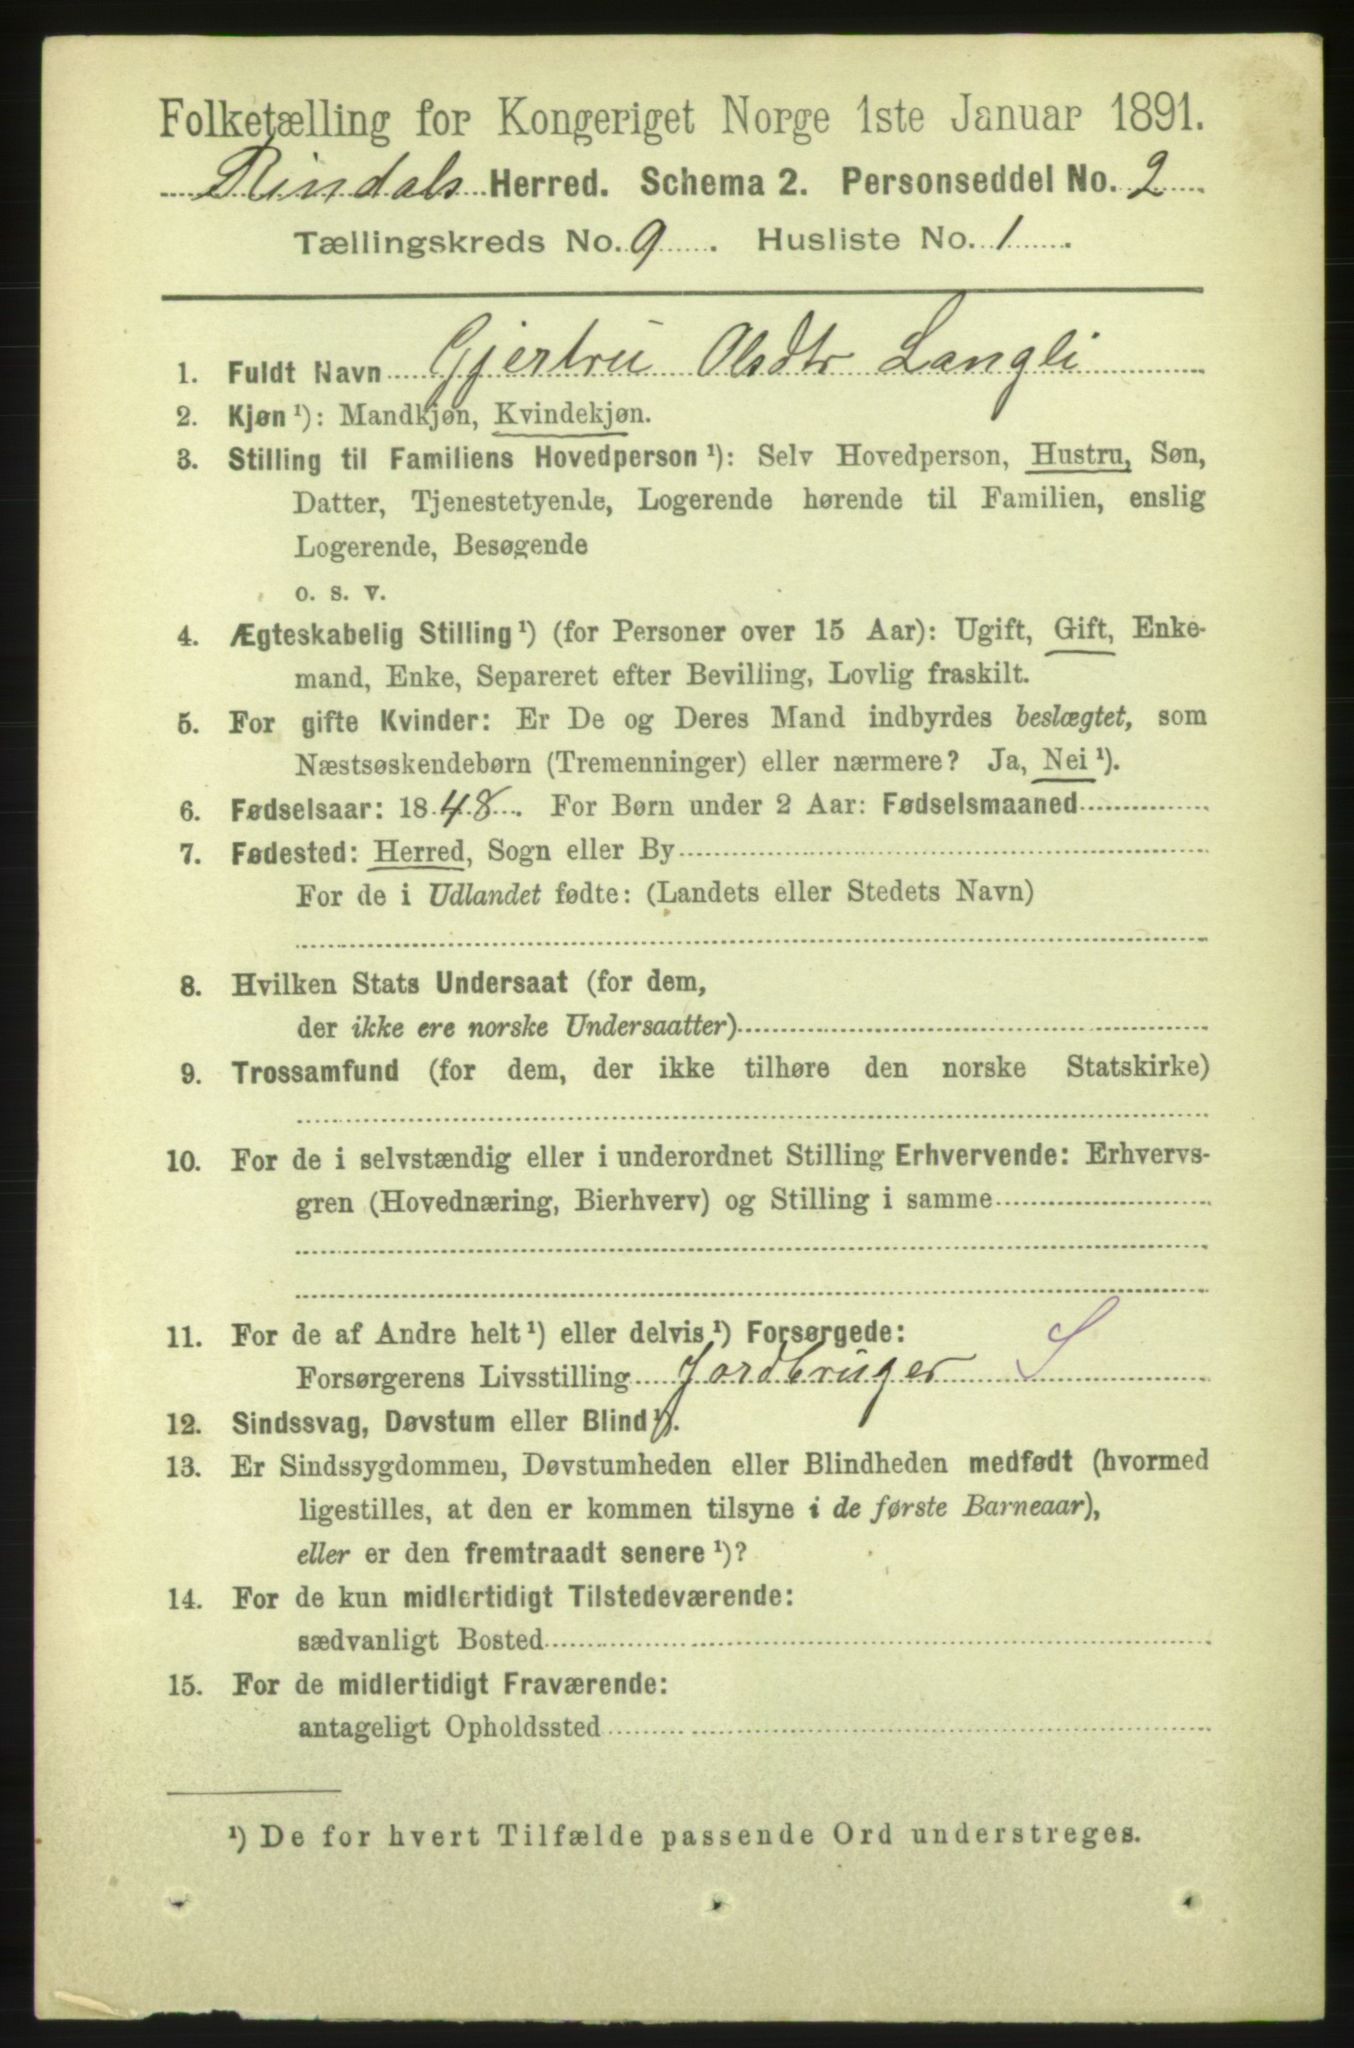 Folketælling for Kongeriget Norge 1ste Januar 1891.
Rindals Herred. Schema 2. Personseddel No. 2
Tællingskreds No. 9. Husliste No. 1.
1. Fuldt Navn Gjertru Olsdtr Langli
2. Kjøn ¹): Mandkjøn, Kvindekjøn.
3. Stilling til Familiens Hovedperson ¹): Selv Hovedperson, Hustru, Søn,
Datter, Tjenestetyende, Logerende hørende til Familien, enslig
Logerende, Besøgende
o. s. v.
4. Ægteskabelig Stilling ¹) (for Personer over 15 Aar): Ugift, Gift, Enke-
mand, Enke, Separeret efter Bevilling, Lovlig fraskilt.
5. For gifte Kvinder: Er De og Deres Mand indbyrdes beslægtet, som
Næstsøskendebørn (Tremenninger) eller nærmere? Ja, Nei ¹).
6. Fødselsaar: 1848. For Børn under 2 Aar: Fødselsmaaned
7. Fødested: Herred, Sogn eller By
For de i Udlandet fødte: (Landets eller Stedets Navn)
8. Hvilken Stats Undersaat (for dem,
der ikke ere norske Undersaatter)
9. Trossamfund (for dem, der ikke tilhøre den norske Statskirke)
10. For de i selvstændig eller i underordnet Stilling Erhvervende: Erhvervs-
gren (Hovednæring, Bierhverv) og Stilling i samme
11. For de af Andre helt ¹) eller delvis ¹) Forsørgede:
Forsørgerens Livsstilling Jordbruger S
12. Sindssvag, Døvstum eller Blind ¹).
13. Er Sindssygdommen, Døvstumheden eller Blindheden medfødt (hvormed
ligestilles, at den er kommen tilsyne i de første Barneaar),
eller er den fremtraadt senere ¹)?
14. For de kun midlertidigt Tilstedeværende:
sædvanligt Bosted
15. For de midlertidigt Fraværende:
antageligt Opholdssted
¹) De for hvert Tilfælde passende Ord understreges.